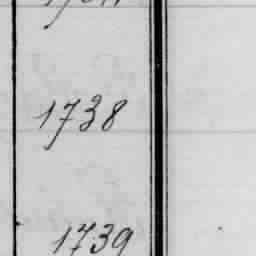 1738
1739